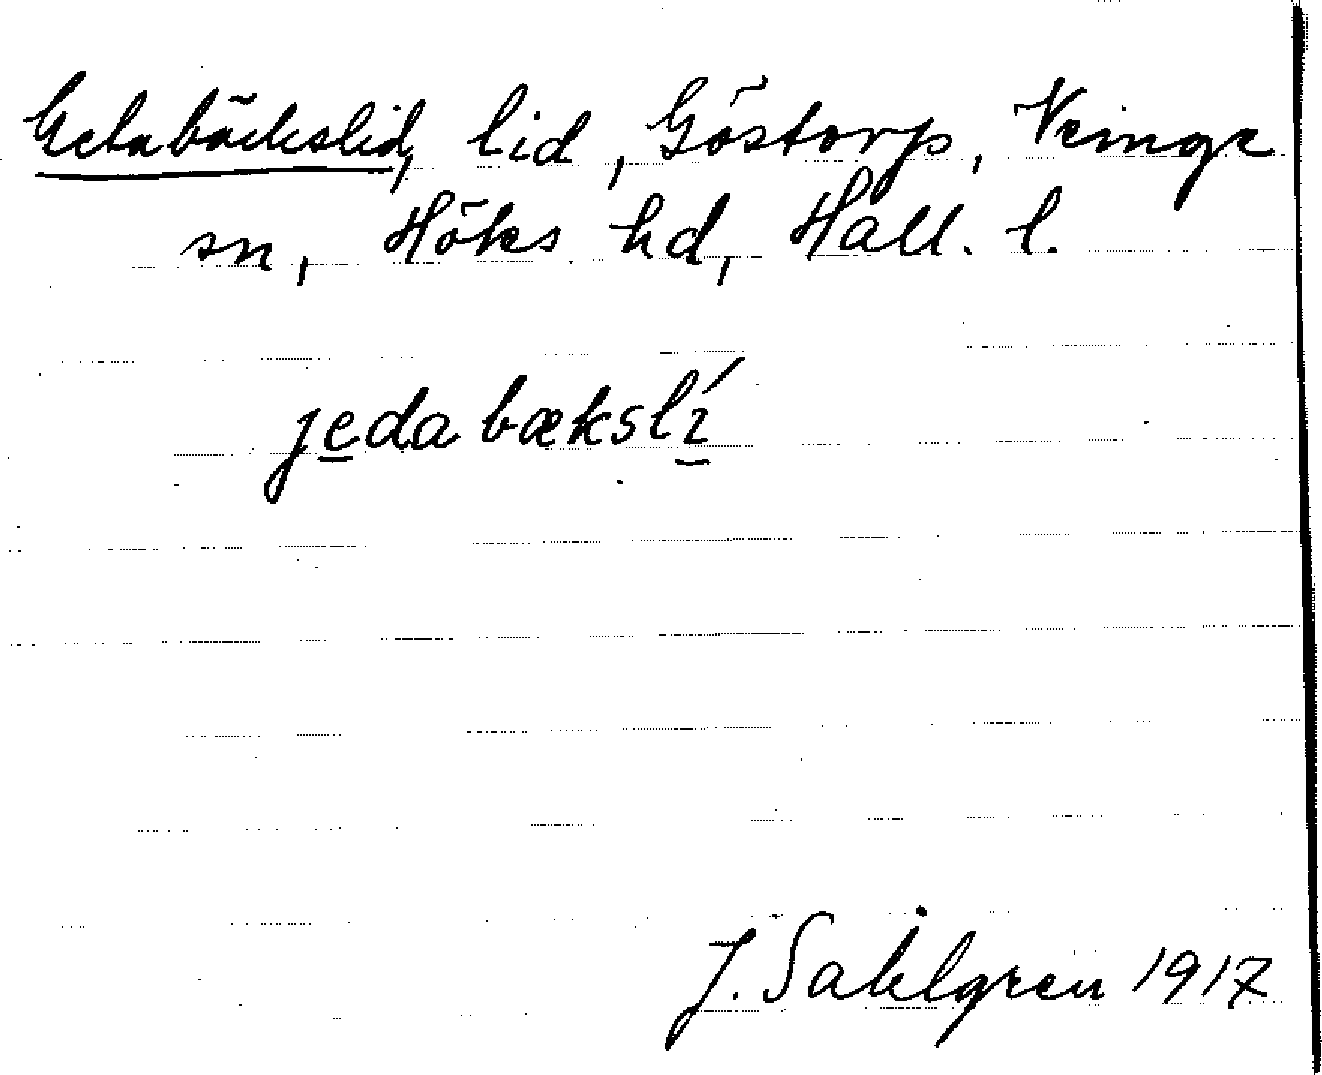 Getabäckslid, lid, Göstorp, Veinge
sn, Höks hd, Hall. l.
jedabækslí
J. Sahlgren 1917